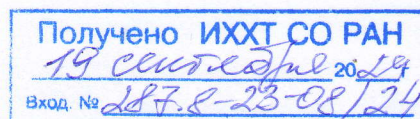 Получено ИХХТ СО РАН
19 сентября 2024г
Вход. № 287.8-23-08/24